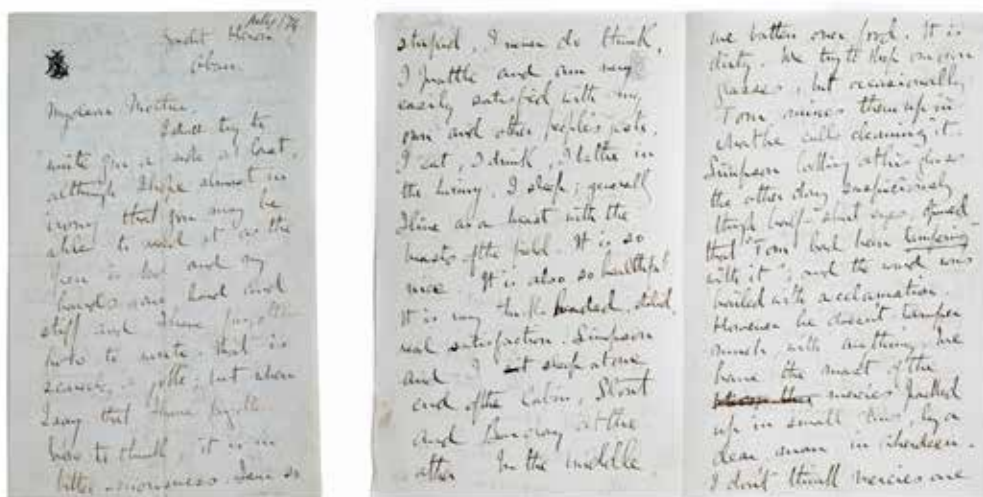 Yacht Heron
Oban.
My dear Mother
I shall try to
write you a note at last,
although I hope almost in
irony that you may be
able to read it as the
pen is bad and my
hands are hard and
stiff and I have forgotten
how to write. that is
but when
I say that I have forgotten
how to think, it is in
bitter seriousness. I am so
stupid, I never do think,
I prattle and am very
easily satisfied with my
own and other people's jests.
I eat, I drink, I bathe in
the briny, I sleep; generally
I live as a beast with the
beasts of the field. It is so
nice It is also so healthful
It is my
real satisfaction. Simpson
and I sleep at one
end of the Cabin, Stout
and at the
other In the middle
we batten over food. It is
dirty. We try to keep our own
glasses, but occasionally
Tom mixes them up in
what he calls cleaning it.
Simpson looking at his glass
the other day suspiciously
through half-shut eyes, opined
that "Tom had been tampering
with it"; and the word was
hailed with acclamation.
However he doesn't tamper
much with anything. We
have the most of the
mercies packed
up in small tins, by a
dear man in Aberdeen.
I don't think mercies are